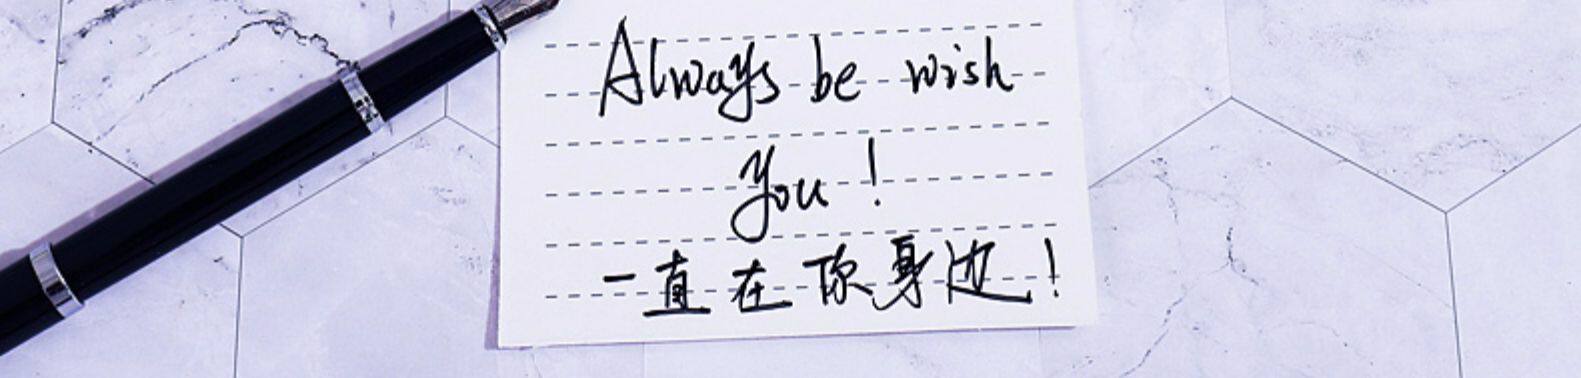 Always be wish
you!
一直在你身边!